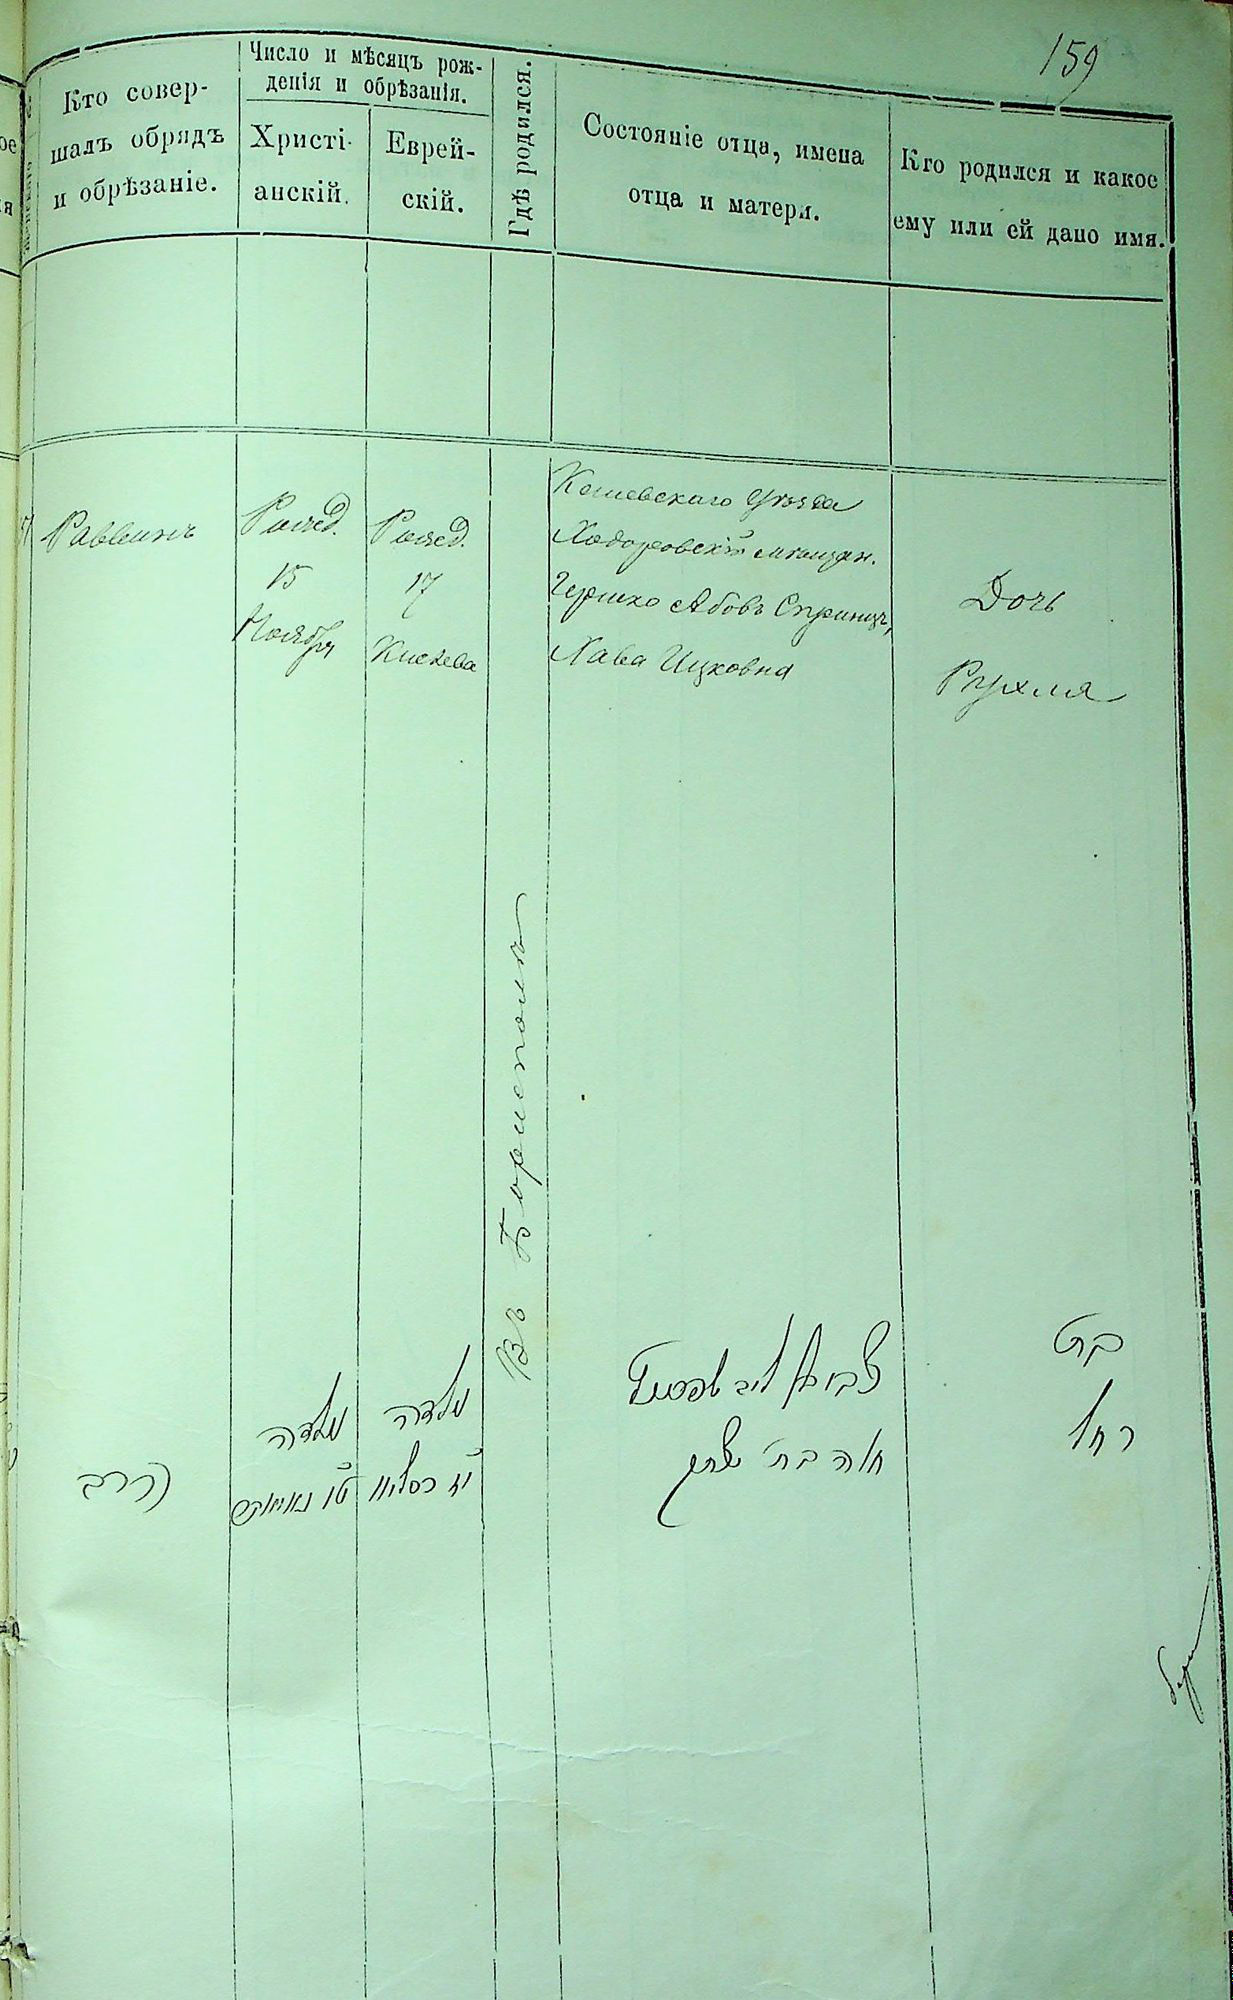 159
Кто совер-
шалъ обрядъ
и обрѣзаніе.
Число и мѣсяцъ рож-
денія и обрѣзанія.
Христі-
анскій.
Еврей-
скій.
Гдѣ родился.
Состояніе отца, имена
отца и матери.
Кто родился и какое
ему или ей дано имя.
Раввинъ
Рожд.
15
Ноября
Рожд.
17
Кислева
Въ Борисполѣ
Кіевскаго Уѣзда
Ходоровскій мѣщан.
Гершко Абовъ
Хава Ицковна
Дочь
Рухля
הרב
נולדה
נולדה
י״ז כסליו
צבי
חוה בת יצחק
בת
רחל